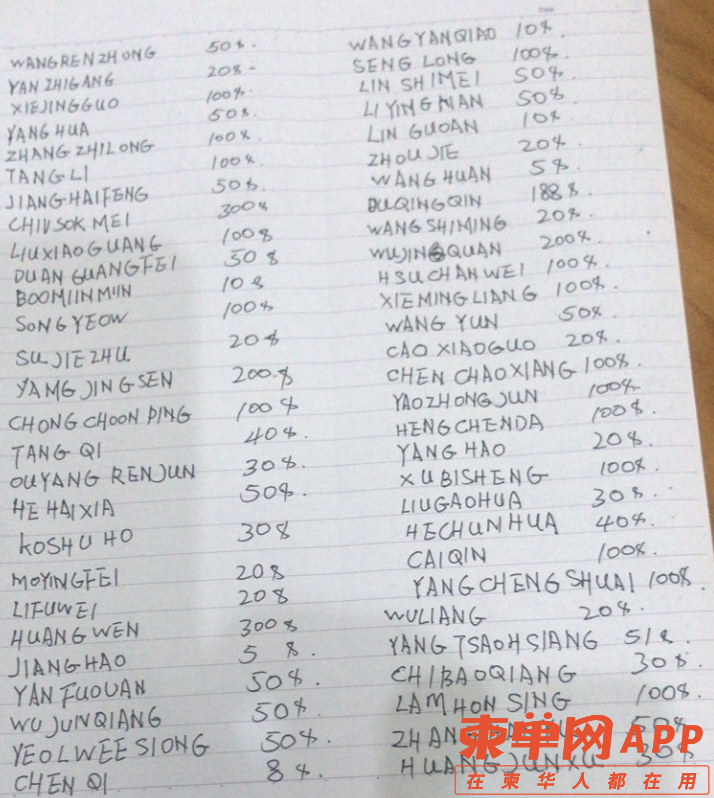 WANGRENZHONG 50$.
YAN ZHIGANG 20$-
XIEJINGGUO 100$.
YANG HUA 50$.
ZHANG ZHILONG 100$
TANGLI 100$.
JIANGHAIFENG 50$.
CHIUSOK MEI 300$
LIUXIAOGUANG 100$
DUAN GUANGFEI 50$
BOOMIINMIIN 10$
SONGYEOW 100$
SUJIEZHU 20$
YAMGJINGSEN 200.$
CHONG CHOON PING 100$
TANG QI 40$.
OUYANG RENJUN 30$.
HE HAIXIA 50$.
KOSHUHO 30$
MOYINGFEI 20$
LIFUWEI 20$
HUANG WEN 300$
JIANGHAO 5$.
YANFUOUAN 50$.
WUJUNQIANG 50$.
YEOLWEESIONG 50$.
CHEN QI 8$.
WANGYANQIAO 10$.
SENG LONG 100$.
LIN SHIMEI 50$.
LIYINGNAN 50$
LIN GUOAN 10$.
ZHOUJIE 20$.
WANG HUAN 5$.
DUQINGQIN 188$.
WANGSHIMING 20$.
WUJINGQUAN 200$.
HSUCHANWEI 100$.
XIEMINGLIANG 100$.
WANG YUN 50$.
CAO XIAOGUO 20$.
CHEN CHAOXIANG 100$.
YAOZHONGJUN 100$.
HENGCHENDA 100$.
YANG HAO 20$.
XUBISHENG 100$.
LIUGAOHUA 30$.
HECHUNHUA 40$.
CAIQIN 100$.
YANGCHENGSHUAI 100$.
WULIANG 20$.
YANG TSAOHSIANG 51$.
CHIBAOQIANG 30$.
LAMHON SING 100$.
ZHANG 50$.
HUANGJUNXU 50$.
柬单网APP
在柬华人都在用